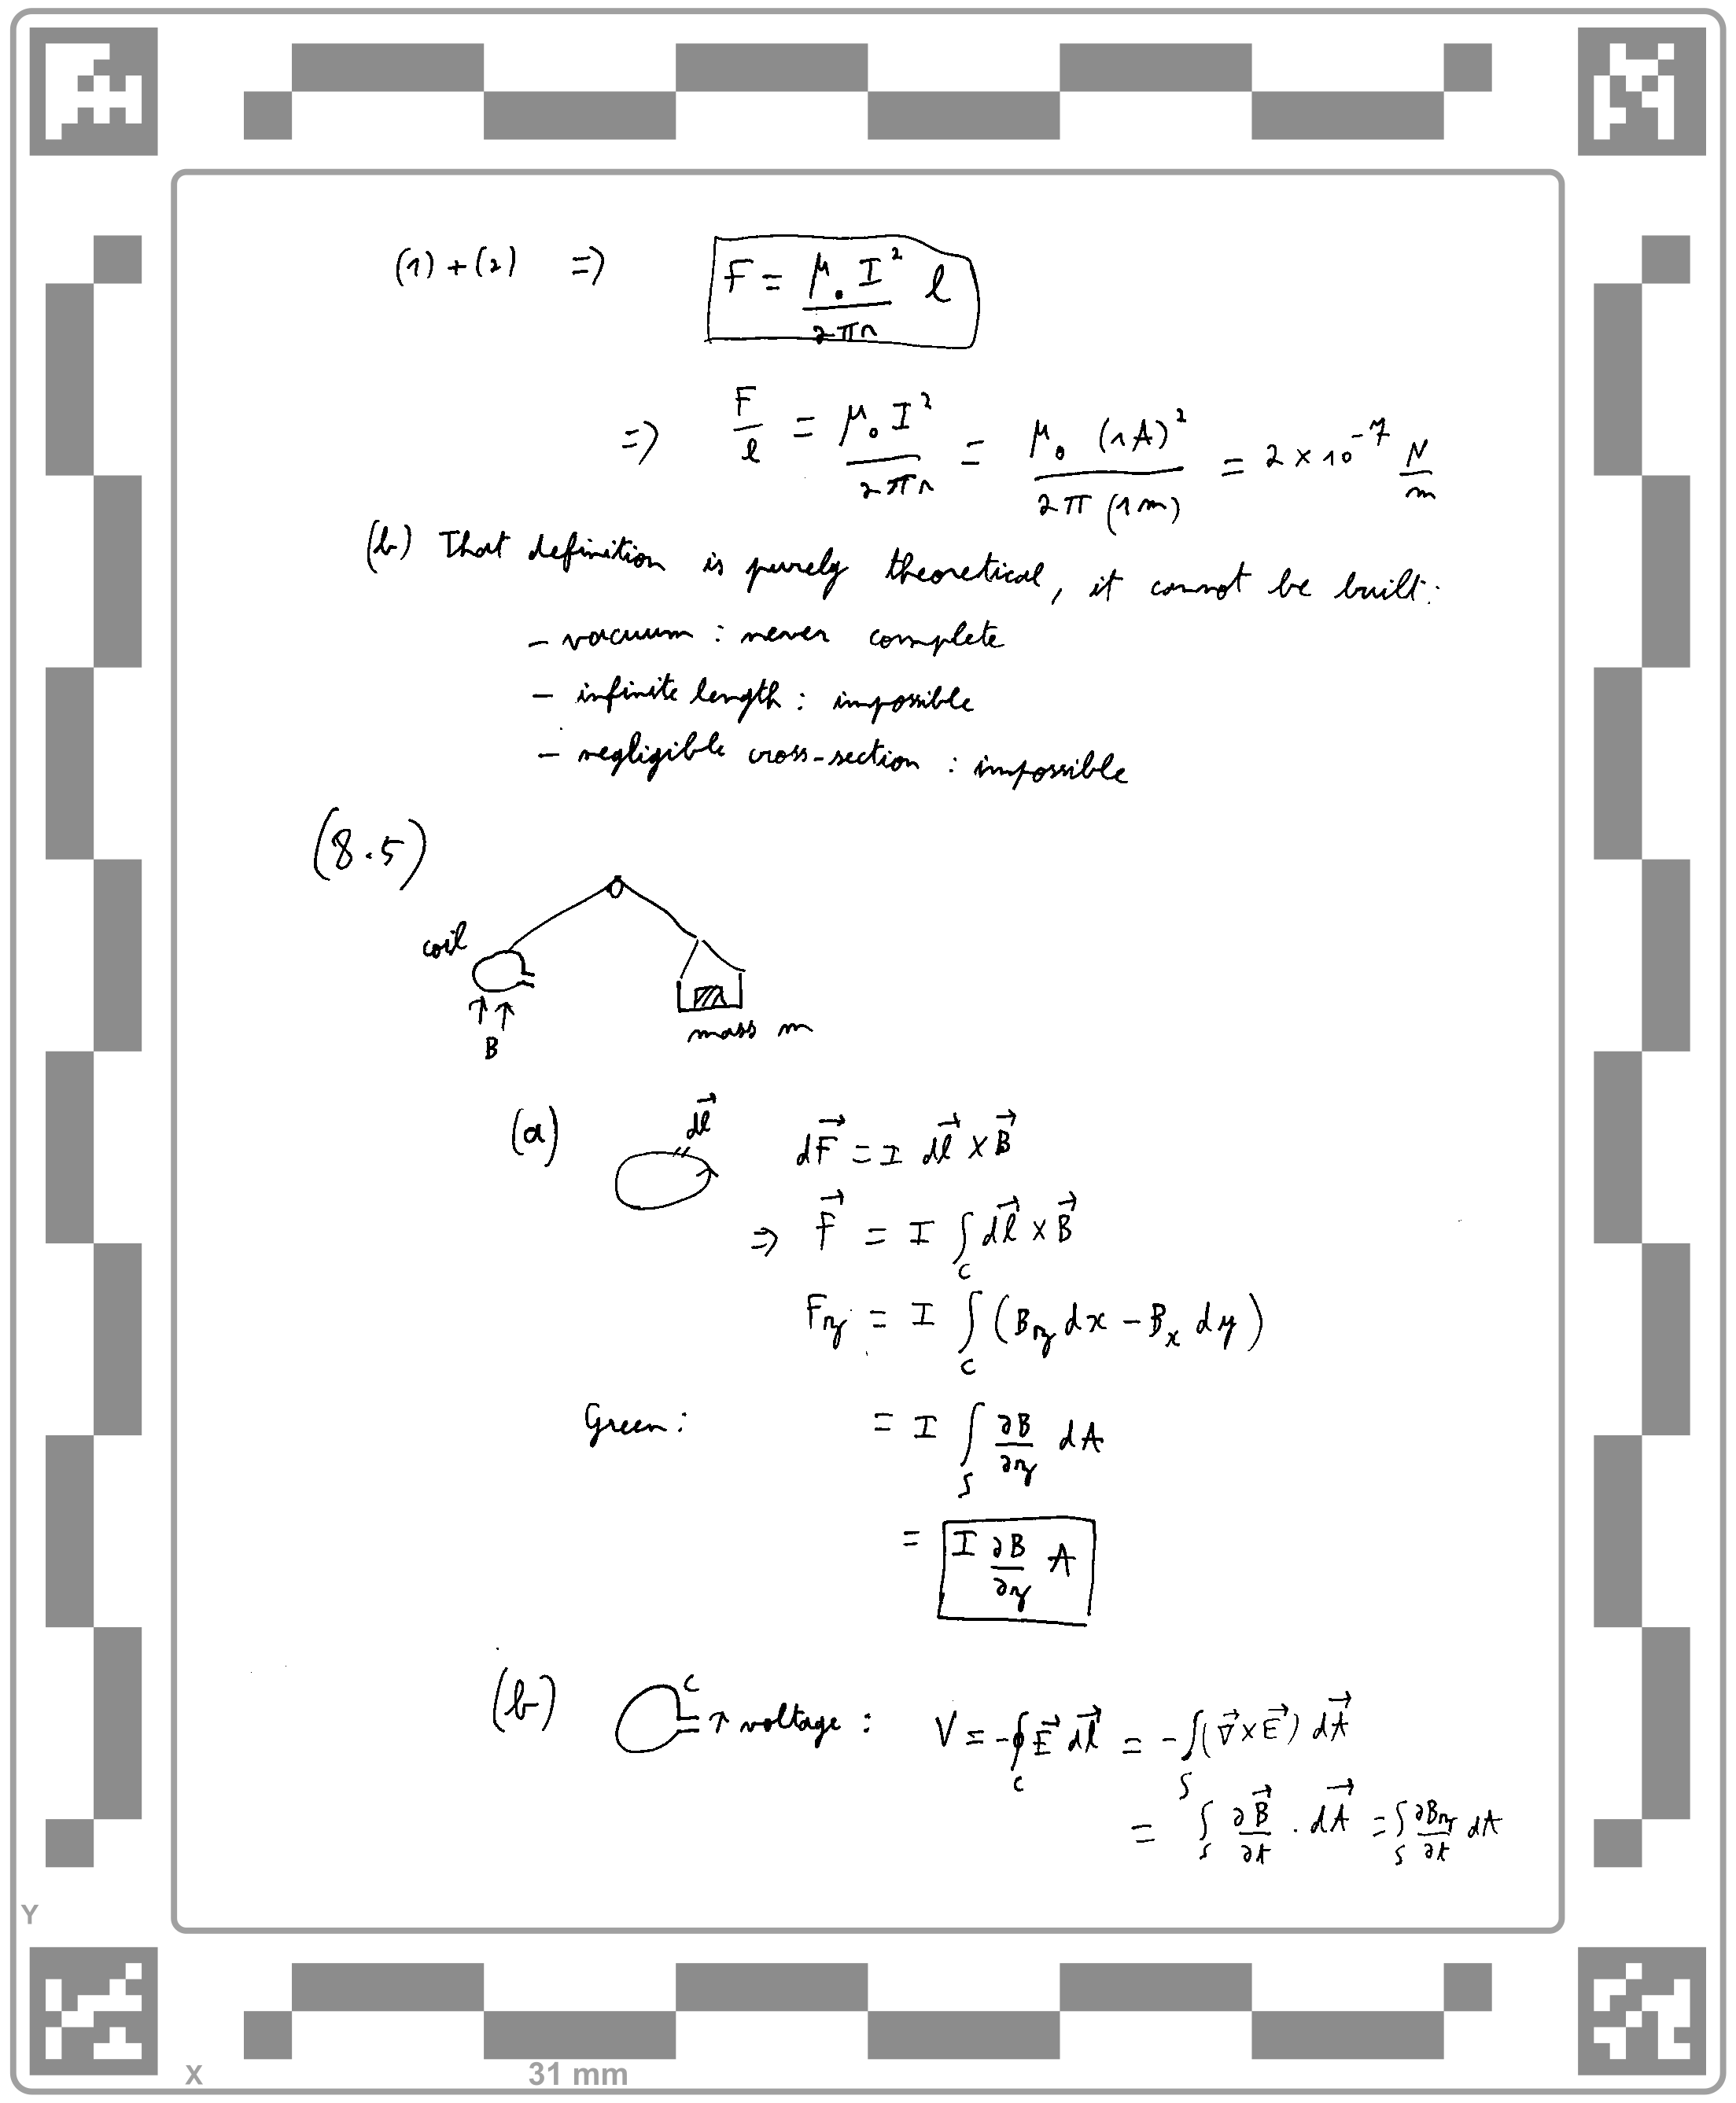 (1)+(2) => F = μ₀ I² / 2πr l
=> F/l = μ₀ I² / 2πr = μ₀ (1A)² / 2π (1m) = 2 × 10⁻⁷ N/m
(b) That definition is purely theoretical, it cannot be built:
- vacuum : never complete
- infinite length : impossible
- negligible cross-section : impossible
(8.5)
coil
B
mass m
(a) dl⃗ dF⃗ = I dl⃗ × B⃗
=> F⃗ = I ∫_C dl⃗ × B⃗
F_y = I ∫_C (B_y dx - B_x dy)
Green: = I ∫_S ∂B/∂y dA
= I ∂B/∂y A
(b) C ↑ voltage : V = -∮_C E⃗ dl⃗ = -∫_S (∇⃗ × E⃗) dA⃗
= ∫_S ∂B⃗/∂t . dA⃗ = ∫_S ∂B_y/∂t dA
Y
X 31 mm